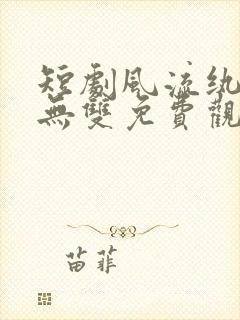 短劇風流紈
無雙免費觀
苗菲